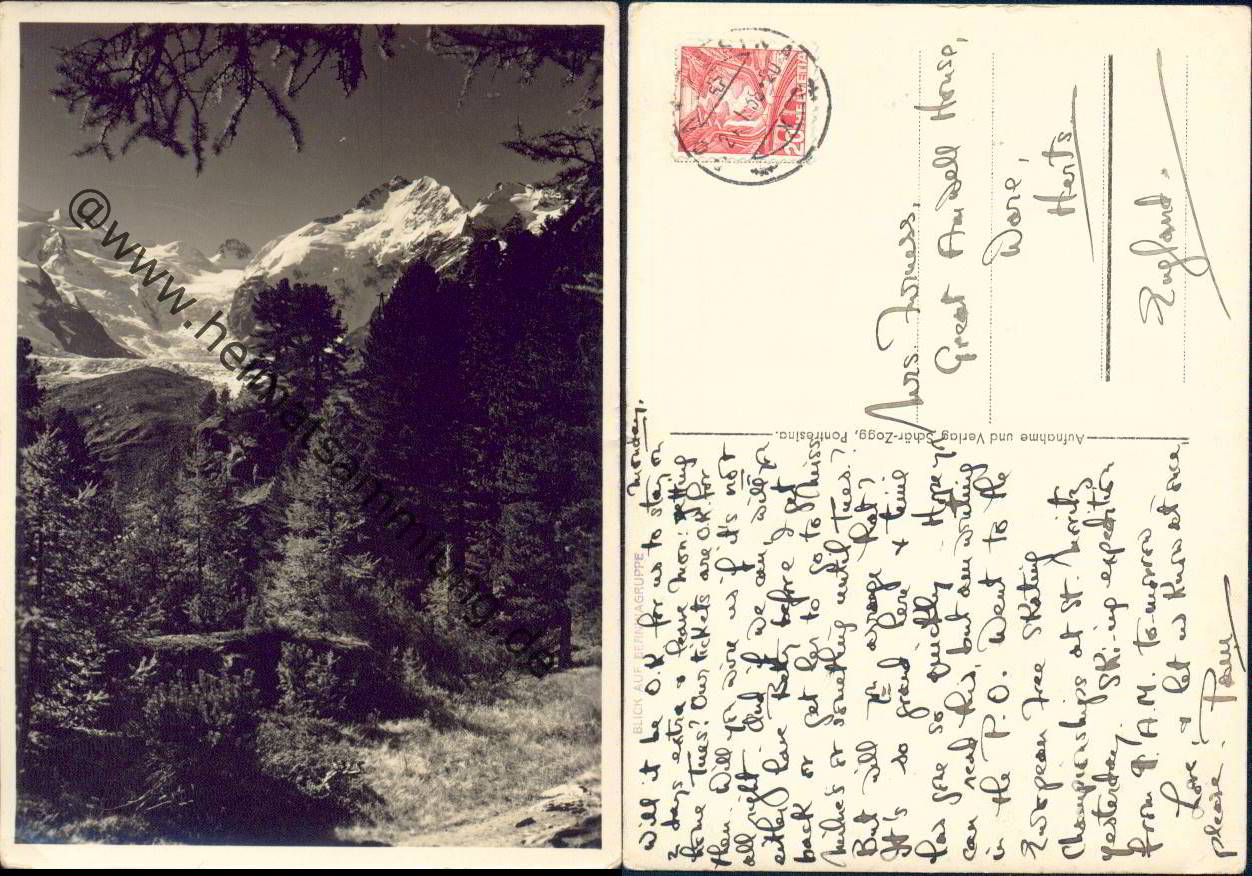 @www.heimatsammlung.de
BLICK AUF BERNINAGRUPPE
Monday,
Will it be O.K for us to stay on
2 days extra & leave Mon: getting
home Tues? Our tickets are O.K. for
then. Will you wire us if it's not
all right. And if we can, will you
either have Betty before I get
back or get her to go to Miss
Milne's or something until Tues:?
But will you arrange that?
It's so grand here & time
has gone so quickly. Hope you
can read this, but am writing
in the P.O. Went to the
European Free Skating
Championships at St. Moritz
yesterday. Ski-ing expedition
from 9. A.M. to-morrow
Love, & let us know at once
please.
Aufnahme und Verlag Schär-Zogg, Pontresina.
HELVETIA
20
Mrs. Furness,
Great Amwell House,
Ware,
Herts
England.